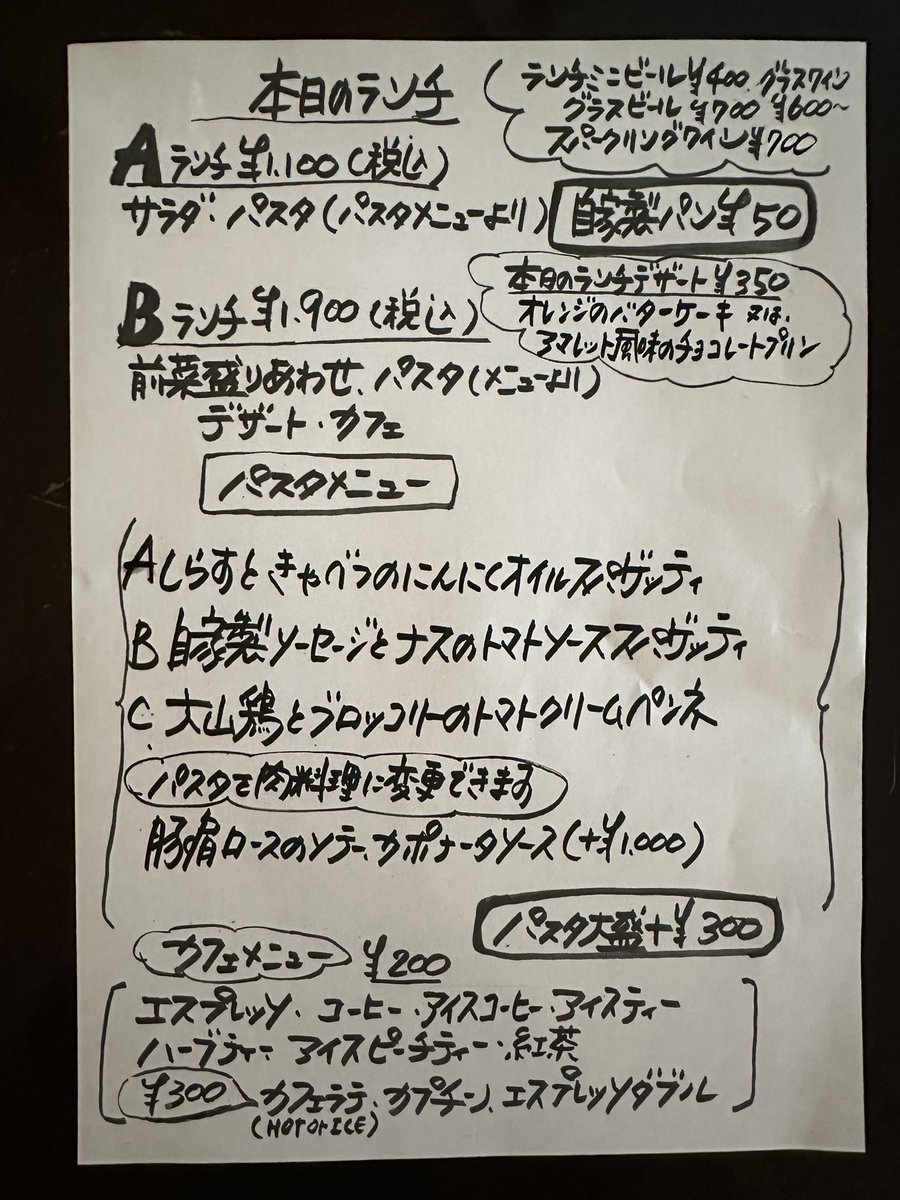 本日のランチ
ランチミニビール¥400. グラスワイン
グラスビール ¥700 ¥600〜
スパークリングワイン¥700
Aランチ¥1,100(税込)
サラダ・パスタ(パスタメニューより)
自家製パン¥50
本日のランチデザート¥350
オレンジのバターケーキ 又は、
アマレット風味のチョコレートプリン
Bランチ¥1,900(税込)
前菜盛りあわせ、パスタ(メニューより)
デザート・カフェ
パスタメニュー
Aしらすときゃべつのにんにくオイルスパゲッティ
B 自家製ソーセージとナスのトマトソーススパゲッティ
C. 大山鶏とブロッコリーのトマトクリームペンネ
パスタを肉料理に変更できます
豚肩ロースのソテー、カポナータソース(+¥1,000)
パスタ大盛+¥300
カフェメニュー ¥200
エスプレッソ・コーヒー・アイスコーヒー・アイスティー
ハーブティー アイスピーチティー・紅茶
¥300 カフェラテ、カプチン、エスプレッソダブル
(HOT or ICE)